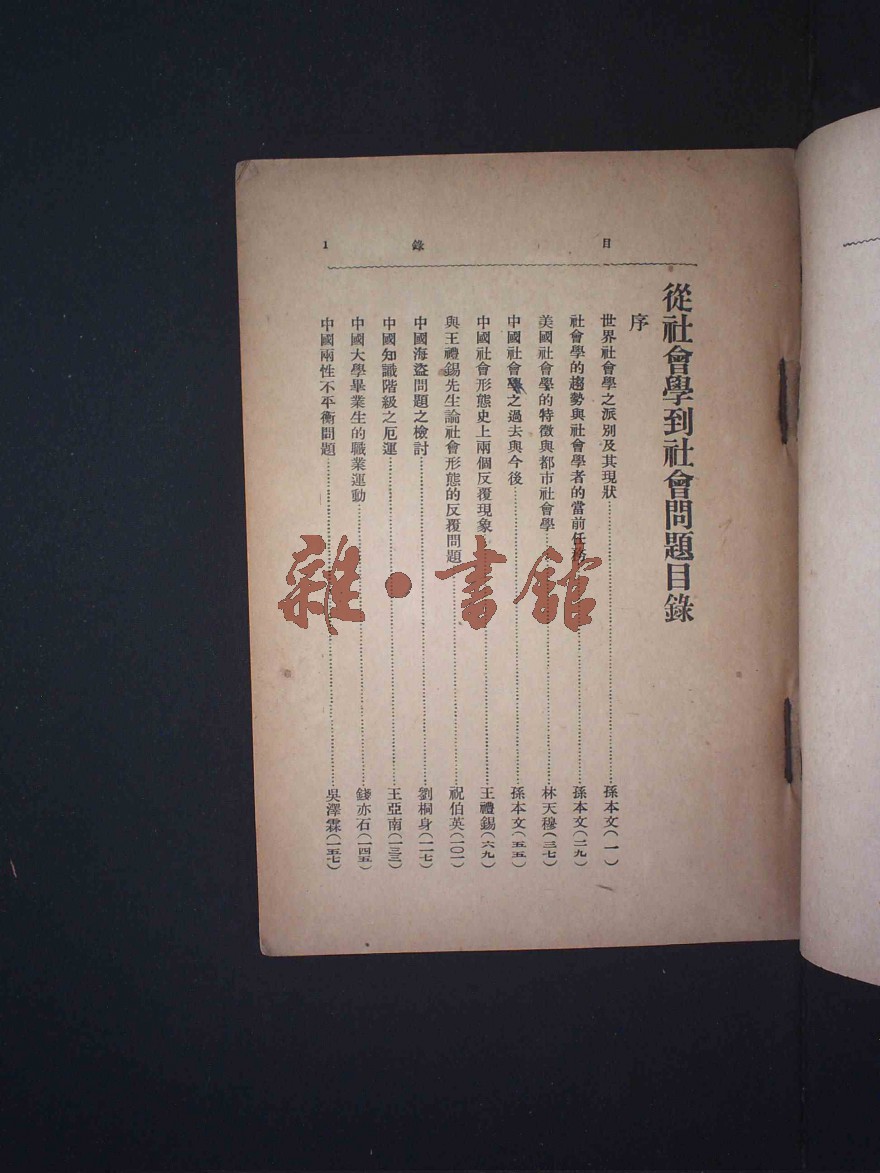 目錄 1
從社會學到社會問題目錄
序
世界社會學之派別及其現狀……孫本文(一)
社會學的趨勢與社會學者的當前任務……孫本文(二九)
美國社會學的特徵與都市社會學……林天穆(三七)
中國社會學之過去與今後……孫本文(五五)
中國社會形態史上兩個反覆現象……王禮錫(六九)
與王禮錫先生論社會形態的反覆問題……祝伯英(一〇一)
中國海盜問題之檢討……劉桐身(一一七)
中國知識階級之厄運……王亞南(一三三)
中國大學畢業生的職業運動……錢亦石(一四五)
中國兩性不平衡問題……吳澤霖(一五七)
雜·書館